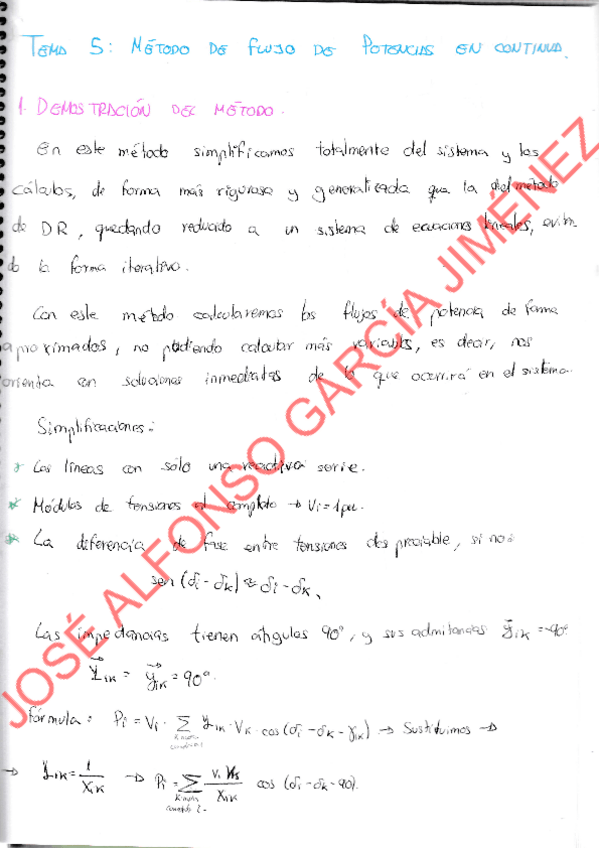 TEMA 5: MÉTODO DE FLUJO DE POTENCIAS EN CONTINUA.
1. DEMOSTRACIÓN DEL MÉTODO.
En este método simplificamos totalmente del sistema y los
cálculos, de forma más rigurosa y generalizada que la del método
de DR, quedando reducido a un sistema de ecuaciones lineales, evitan
do la forma iterativa.
Con este método calcularemos los flujos de potencia de forma
aproximados, no pudiendo calcular más variables, es decir, nos
orienta en soluciones inmediatas de lo que ocurrirá en el sistema.
Simplificaciones:
* Las líneas con sólo una reactiva serie.
* Módulos de tensiones al completo → Vi = 1pu.
* La diferencia de fase entre tensiones despreciable, si no:
sen (δi - δk) ≈ δi - δk
Las impedancias tienen ángulos 90°, y sus admitancias ȳik = -90°
Yik = yik = 90°.
fórmula: Pi = Vi · Σ Yik · Vk · cos (δi - δk - γik) → Sustituimos →
→ Yik = 1/Xik → Pi = Σ Vi Vk/Xik cos (δi - δk - 90).
JOSÉ ALFONSO GARCÍA JIMÉNEZ